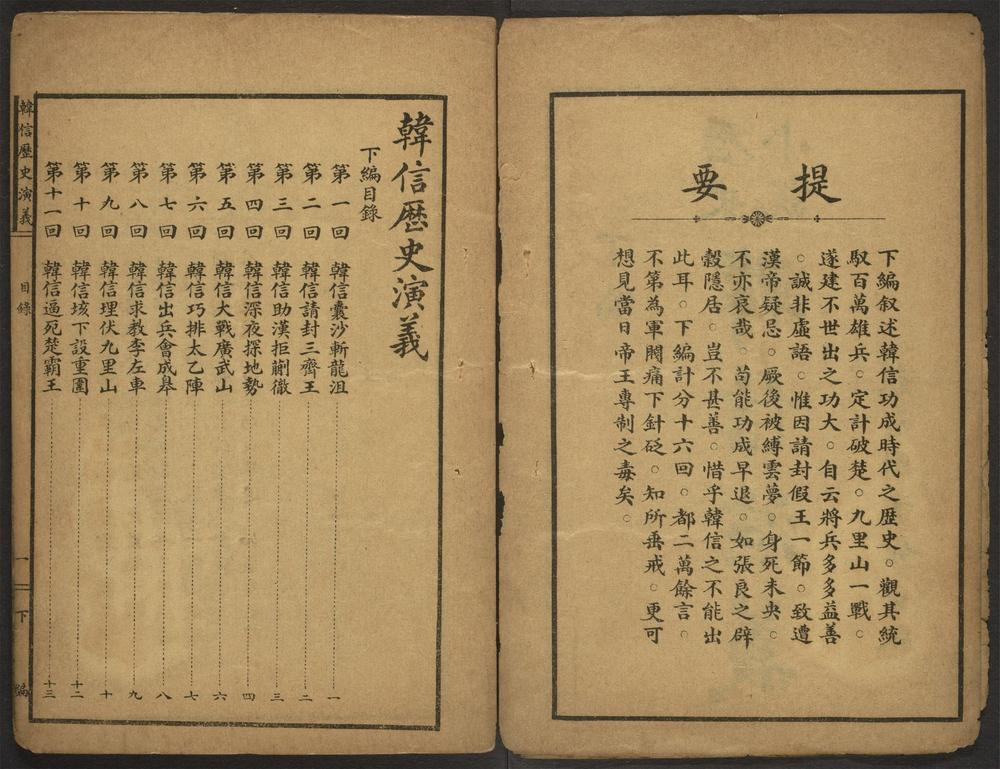 提要
下編叙述韓信功成時代之歷史。觀其統
馭百萬雄兵。定計破楚。九里山一戰。
遂建不世出之功大。自云將兵多多益善
。誠非虛語。惟因請封假王一節。致遭
漢帝疑忌。厥後被縛雲夢。身死未央。
不亦哀哉。苟能功成早退。如張良之辟
穀隱居。豈不甚善。惜乎韓信之不能出
此耳。下編計分十六回。都二萬餘言。
不第為軍閥痛下針砭。知所垂戒。更可
想見當日帝王專制之毒矣。
韓信歷史演義
下編目錄
第一回 韓信囊沙斬龍沮 一
第二回 韓信請封三齊王 二
第三回 韓信助漢拒蒯徹 三
第四回 韓信深夜探地勢 四
第五回 韓信大戰廣武山 六
第六回 韓信巧排太乙陣 七
第七回 韓信出兵會成皋 八
第八回 韓信求教李左車 九
第九回 韓信埋伏九里山 十
第十回 韓信垓下設重圍 十二
第十一回 韓信逼死楚霸王 十三
韓信歷史演義 目錄 一 下編